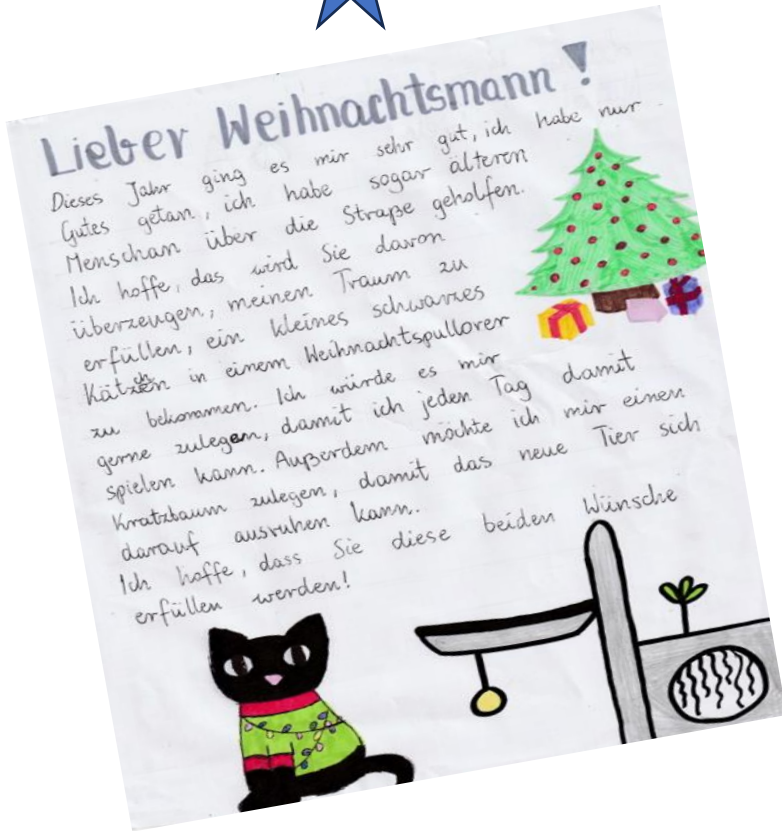 Lieber Weihnachtsmann!
Dieses Jahr ging es mir sehr gut, ich habe nur
Gutes getan, ich habe sogar älteren
Menschan über die Straße geholfen.
Ich hoffe, das wird Sie davon
überzeugen, meinen Traum zu
erfüllen, ein kleines schwarzes
Kätzchen in einem Weihnachtspullover
zu bekommen. Ich würde es mir
gerne zulegen, damit ich jeden Tag damit
spielen kann. Außerdem möchte ich mir einen
Kratzbaum zulegen, damit das neue Tier sich
darauf ausruhen kann.
Ich hoffe, dass Sie diese beiden Wünsche
erfüllen werden!